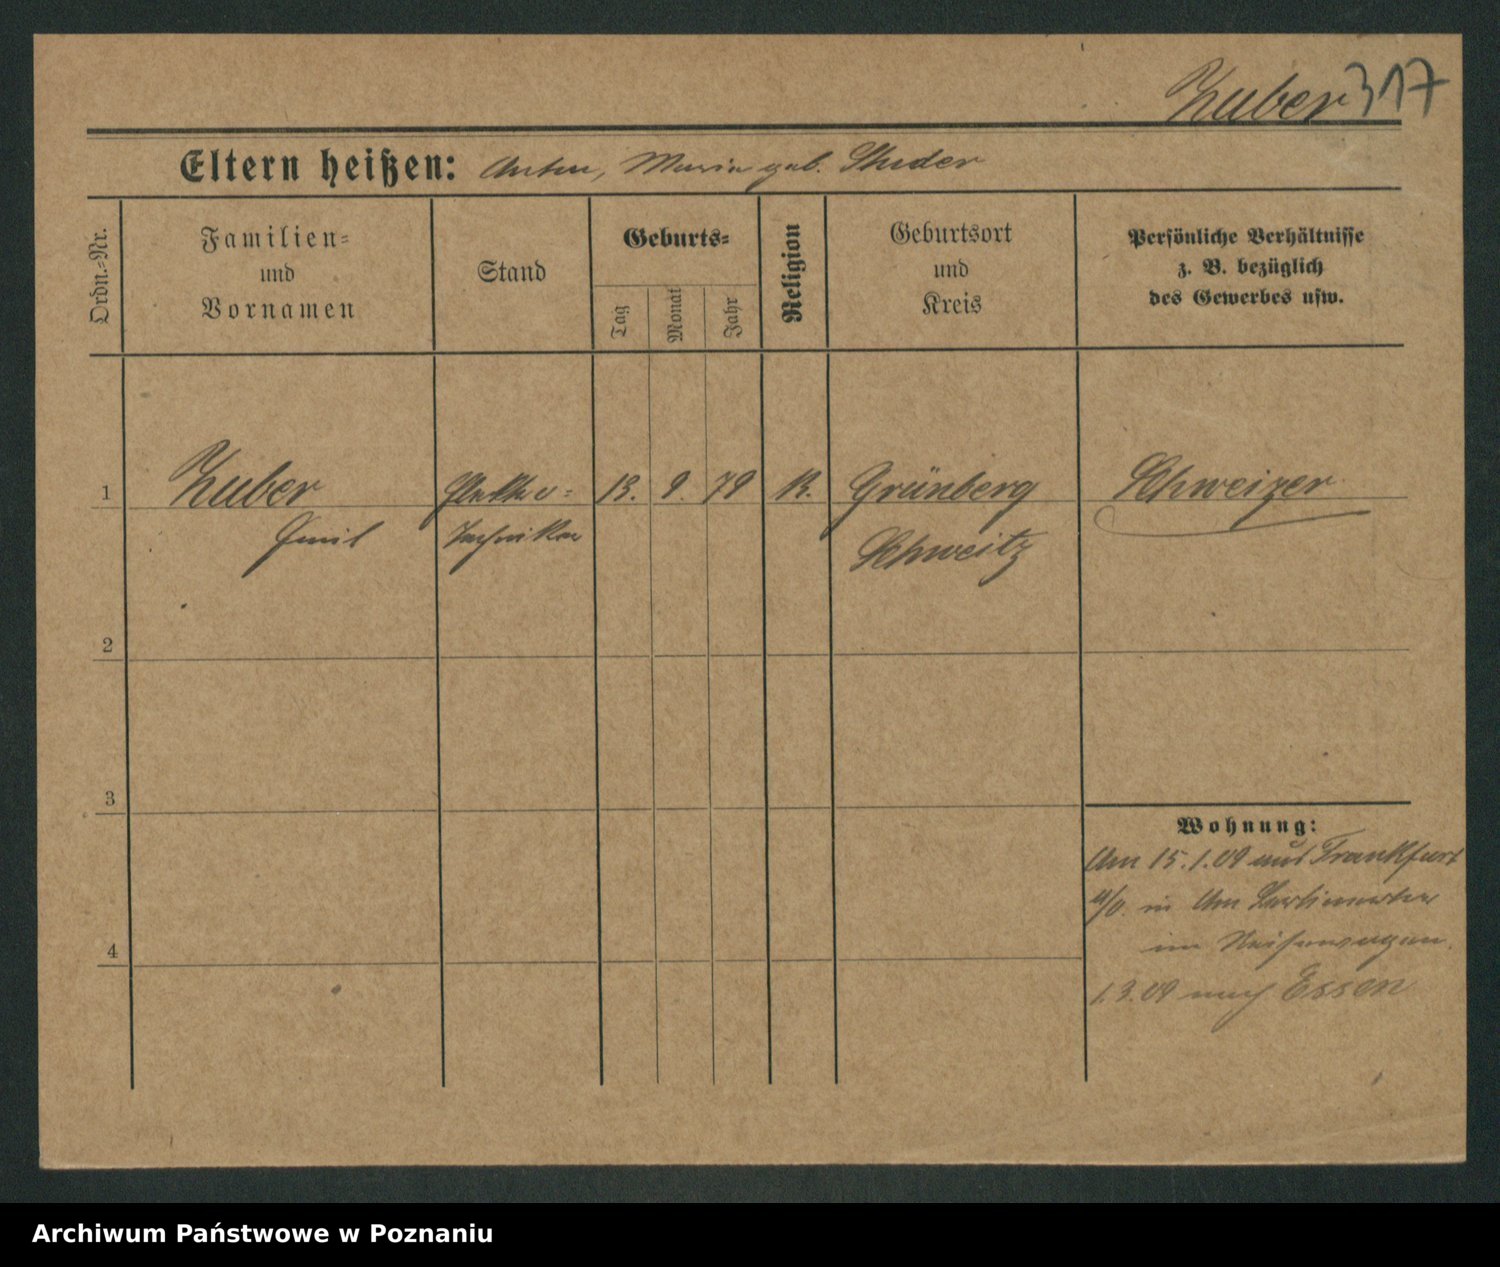 Zuber 317
Eltern heißen: Anton, Maria geb. Studer
Ordn.-Nr.
Familien-
und
Vornamen
Stand
Geburts-
Tag
Monat
Jahr
Religion
Geburtsort
und
Kreis
Persönliche Verhältnisse
z. B. bezüglich
des Gewerbes usw.
1 Zuber Elektro- 13. 9. 79 K. Grünberg Schweizer
Emil Techniker Schweitz
2
3
4
Wohnung:
Am 15.1.09 aus Frankfurt
a/O. in Am
im
1.3.09 nach Essen
Archiwum Państwowe w Poznaniu